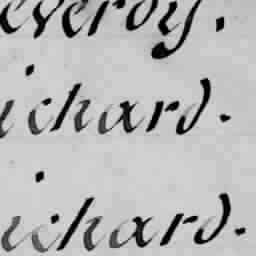 everdy.
ichard.
ichard.